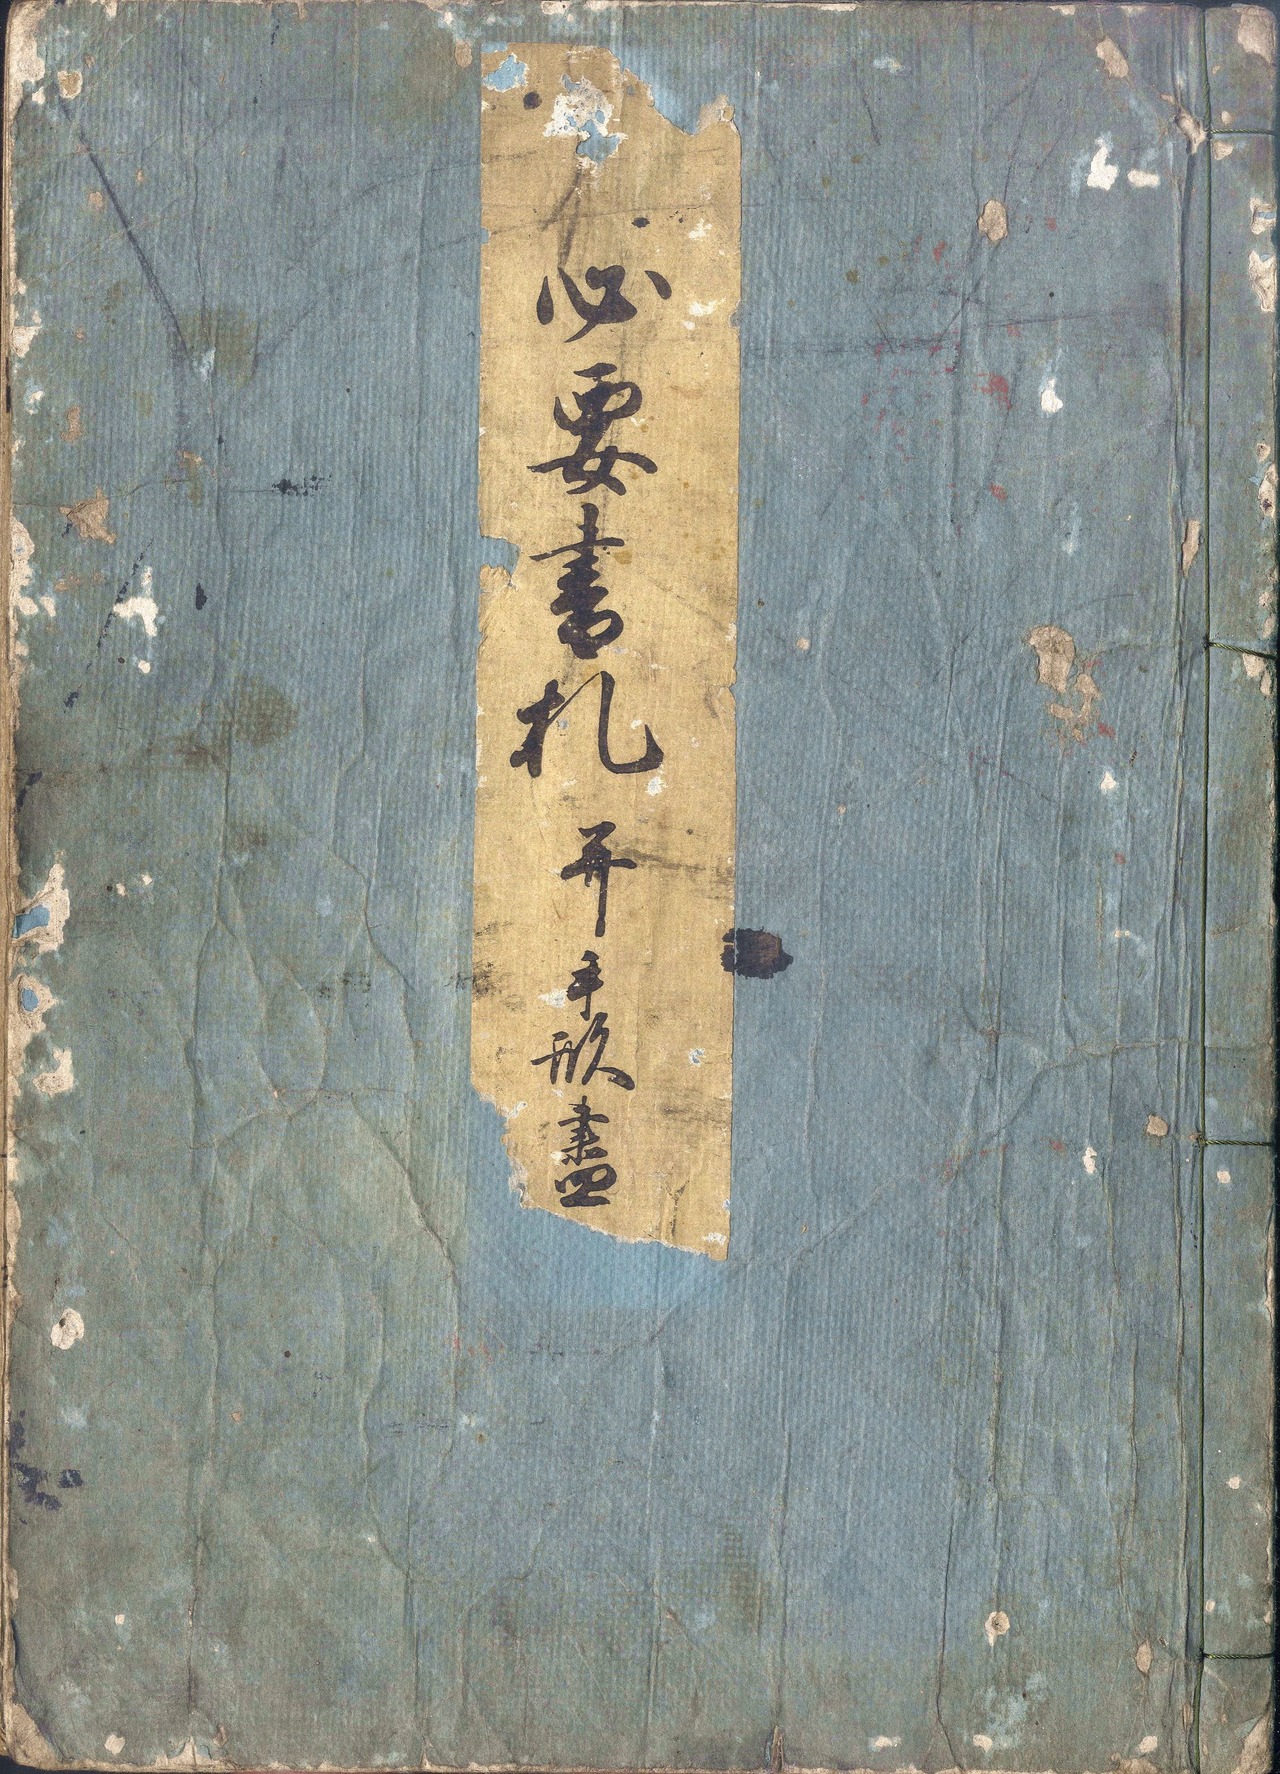 必要書札并手形盡